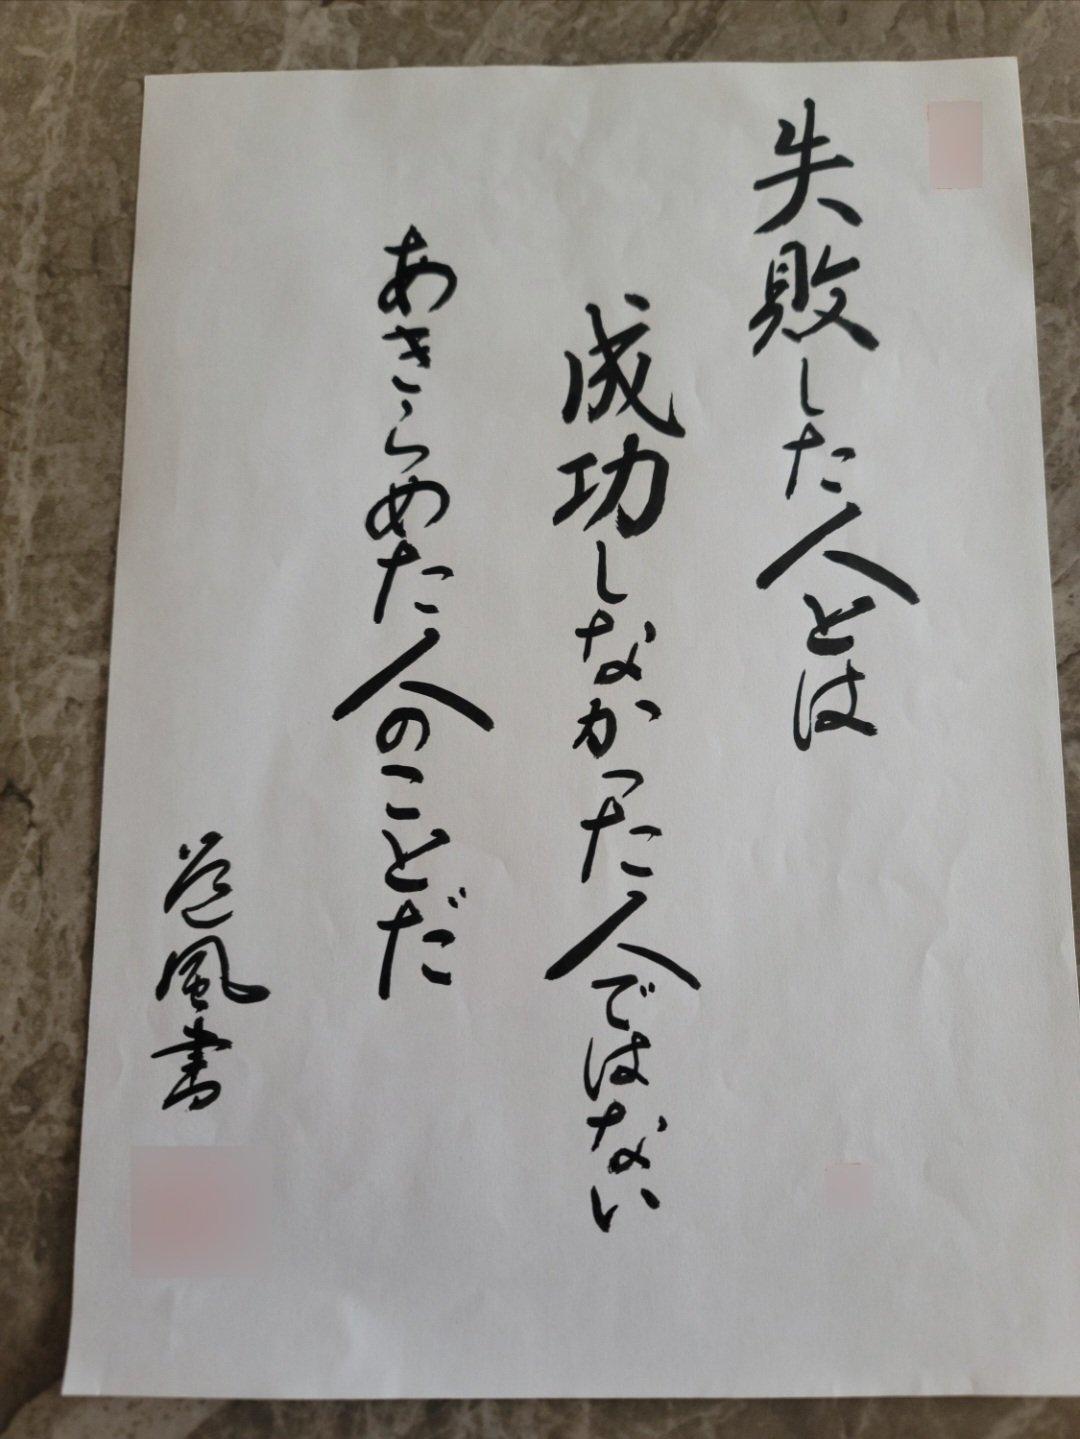 失敗した人とは
成功しなかった人ではない
あきらめた人のことだ
風書